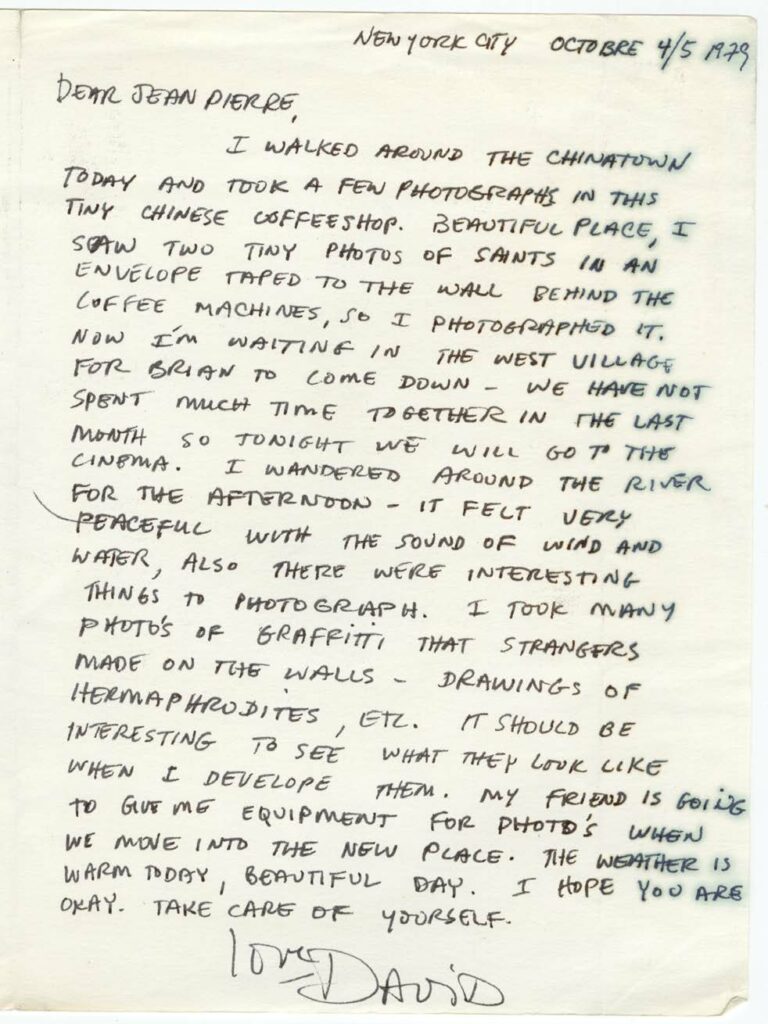 NEW YORK CITY OCTOBRE 4/5 1979
DEAR JEAN PIERRE,
I WALKED AROUND THE CHINATOWN
TODAY AND TOOK A FEW PHOTOGRAPHS IN THIS
TINY CHINESE COFFEESHOP. BEAUTIFUL PLACE, I
SAW TWO TINY PHOTOS OF SAINTS IN AN
ENVELOPE TAPED TO THE WALL BEHIND THE
COFFEE MACHINES, SO I PHOTOGRAPHED IT.
NOW I'M WAITING IN THE WEST VILLAGE
FOR BRIAN TO COME DOWN – WE HAVE NOT
SPENT MUCH TIME TOGETHER IN THE LAST
MONTH SO TONIGHT WE WILL GO TO THE
CINEMA. I WANDERED AROUND THE RIVER
FOR THE AFTERNOON – IT FELT VERY
PEACEFUL WITH THE SOUND OF WIND AND
WATER, ALSO THERE WERE INTERESTING
THINGS TO PHOTOGRAPH. I TOOK MANY
PHOTO'S OF GRAFFITTI THAT STRANGERS
MADE ON THE WALLS – DRAWINGS OF
HERMAPHRODITES, ETC. IT SHOULD BE
INTERESTING TO SEE WHAT THEY LOOK LIKE
WHEN I DEVELOPE THEM. MY FRIEND IS GOING
TO GIVE ME EQUIPMENT FOR PHOTO'S WHEN
WE MOVE INTO THE NEW PLACE. THE WEATHER IS
WARM TODAY, BEAUTIFUL DAY. I HOPE YOU ARE
OKAY. TAKE CARE OF YOURSELF.
love DAViD